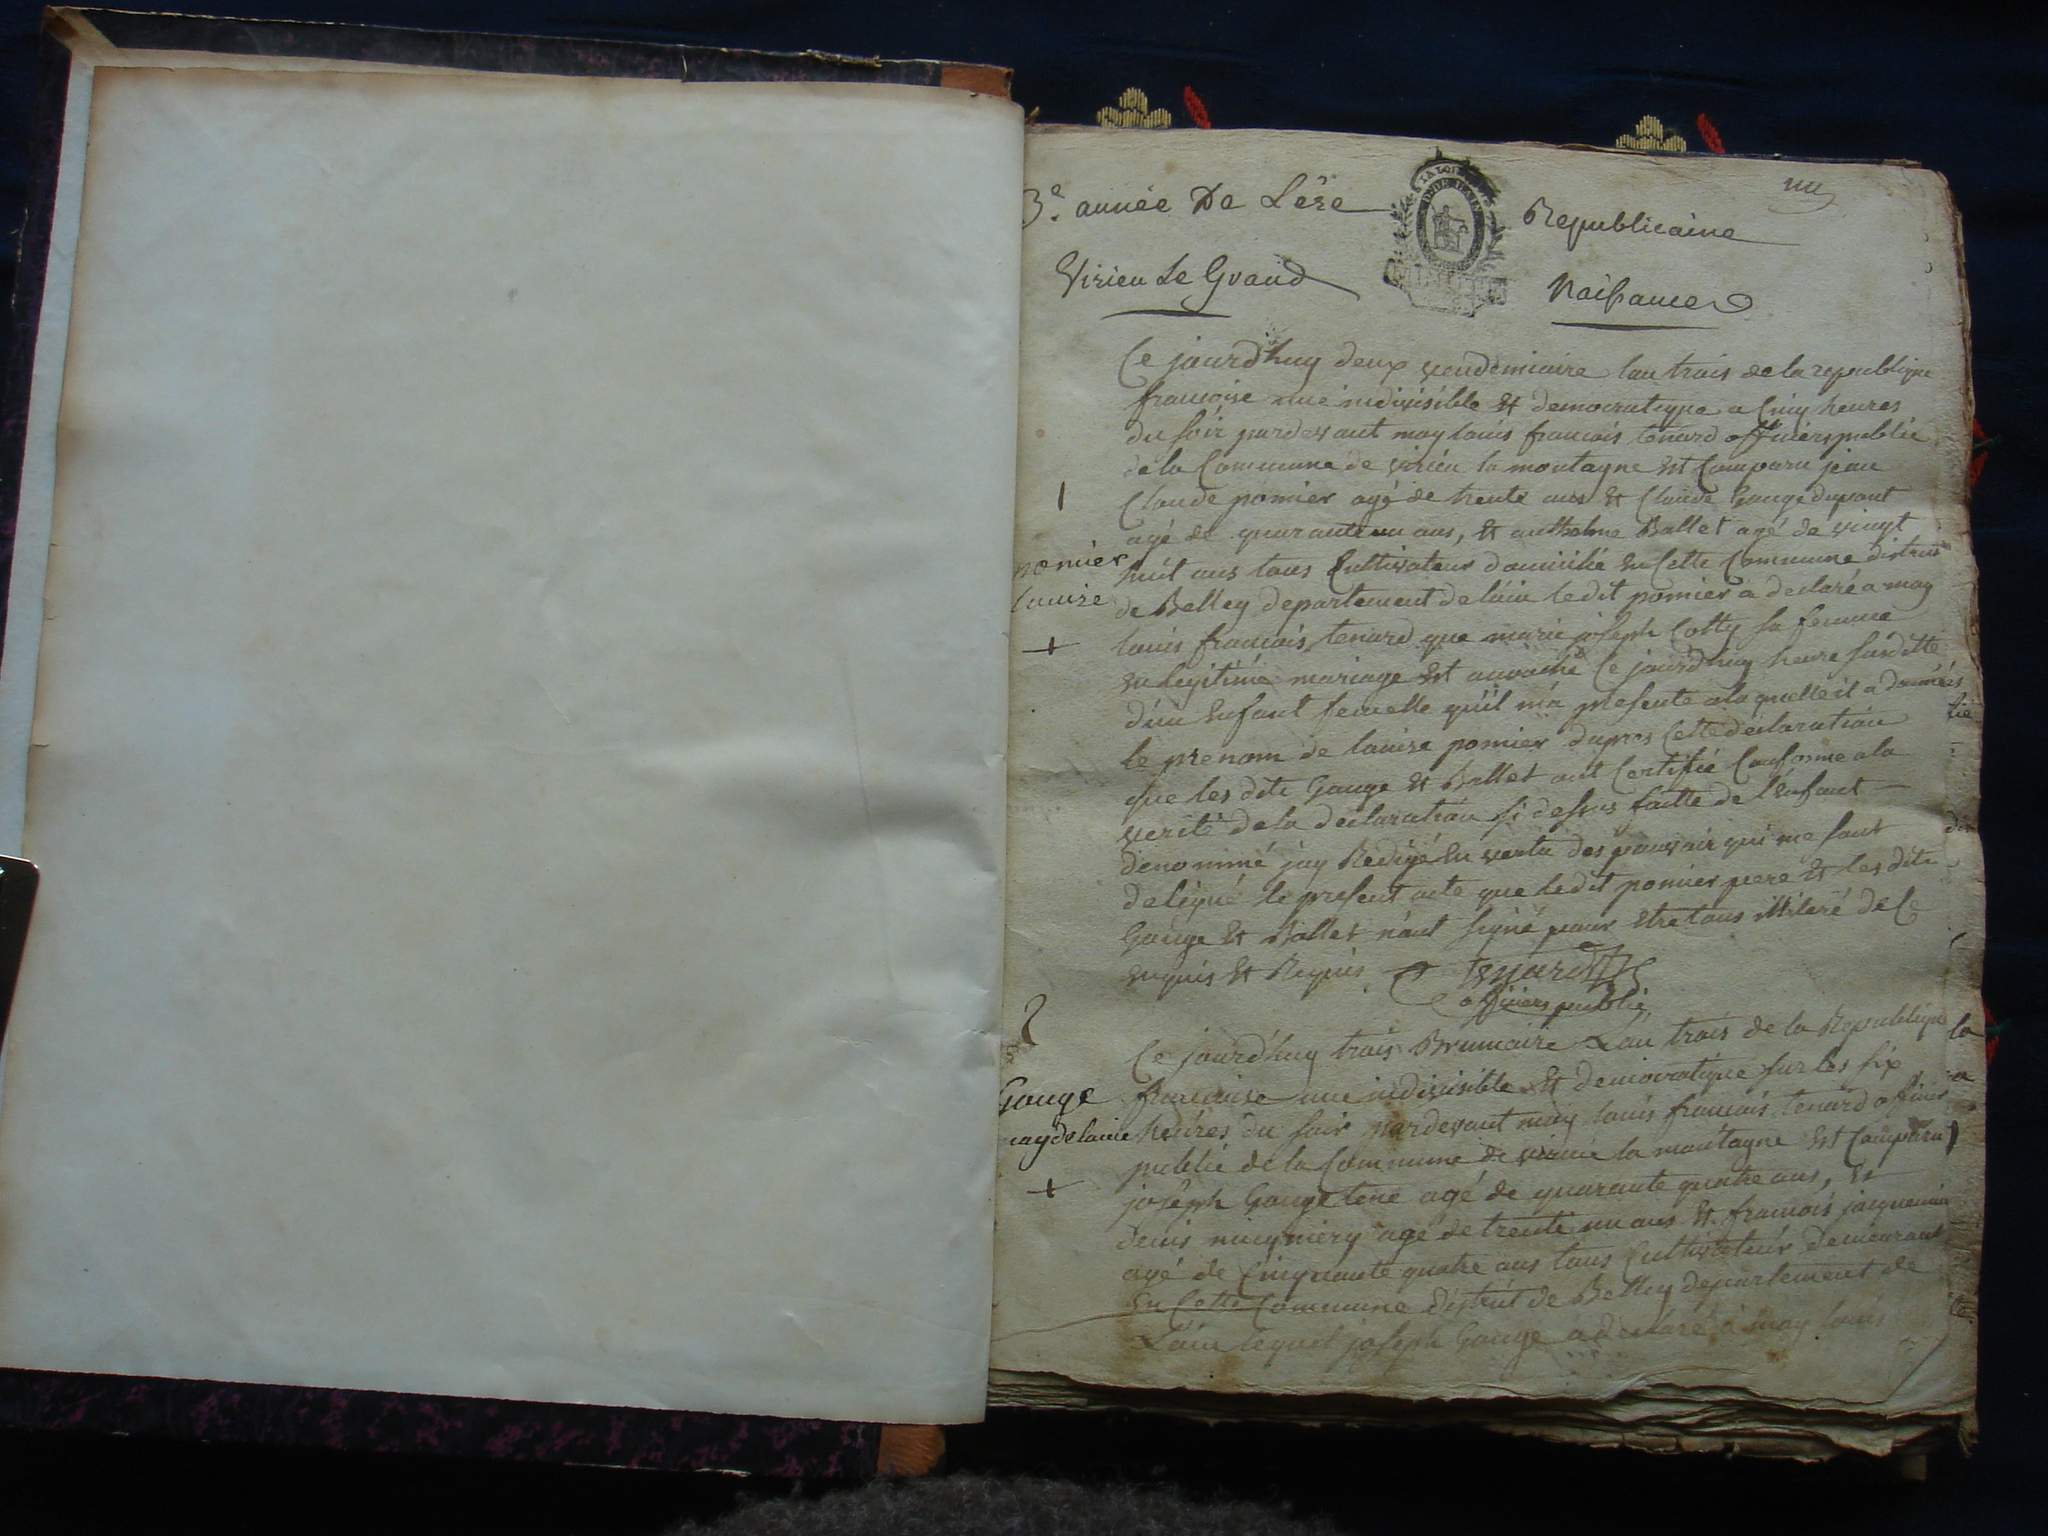 3e. année De Lère Republicaine
Virieu Le Grand Naissances
Ce jourdhuy deux vendémiaire lan trois de la republique
francoise une indivisible et democratique a Cinq heures
du soir pardevant moy louis francois tenard officiers public
de la Commune de virieu la montagne est Comparu jean
1
Claude pomier agé de trente ans et Claude Gouge dupont
agé de quarante un ans, et anthelme Ballet agé de vingt
pomier
huit ans tous Cultivateur domicilié en Cette Commune district
louise
de Belley departement de lain ledit pomier a declaré a moy
+
louis francois tenard que marie joseph Cotty sa femme
en legitime mariage est accouché Ce jourdhuy heure susditte
d'un enfant femelle qu'il m'a presenté a la quelle il a donnés
le prenom de louise pomier dapres Cette declaration
que les dits Gouge et Ballet ont Certifié Conforme a la
verité de la declaration si dessus faitte de l'enfant
denommé jay Redigé en vertu des pouvoir qui me sont
delégué le present acte que ledit pomier pere et les dits
Gouge et Ballet n'ont signé pour etre tous illiteré de Ce
enquis et Requis Tenard
officiers public
2
Ce jourd'huy trois Brumaire Lan trois de la Republique
Gouge
francoise une indivisible et democratique sur les six
magdelaine
heures du soir pardevant moy louis francois tenard officier
public de la Commune de virieu la montagne est Comparu
+
joseph Gouge tene agé de quarante quatre ans, et
denis agé de trente un ans et francois jacquemin
agé de Cinquante quatre ans tous Cultivateur demeurant
en Cette Commune district de Belley departement de
Lain lequel joseph Gouge a declaré a moy louis